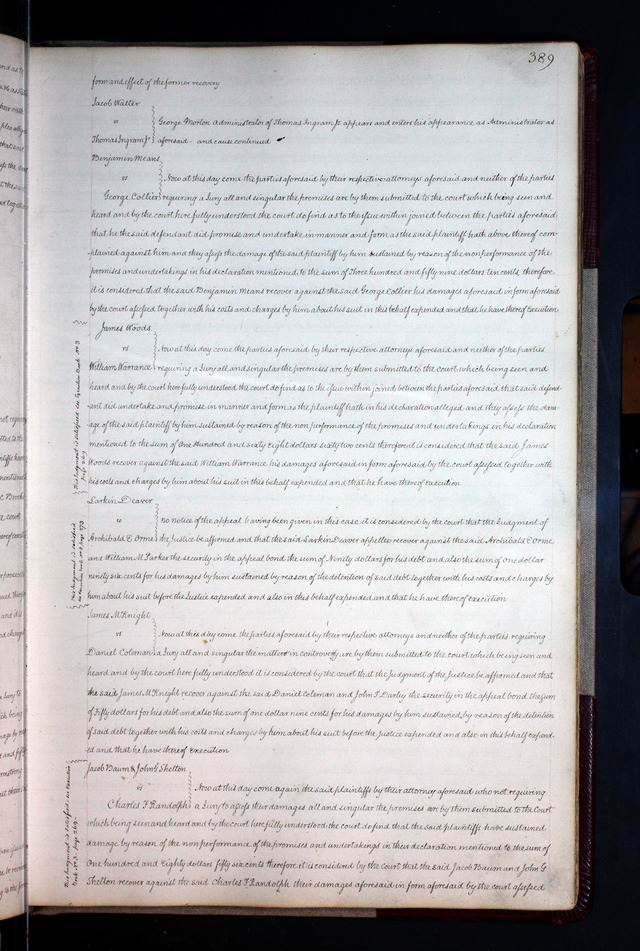 389
form and effect of the former recovery
Jacob Walter
vs George Morton Administrator of Thomas Ingram Jr appears and enters his appearance as Administrator as
Thomas Ingram Jr aforesaid - and cause continued
Benjamin Means
vs Now at this day come the parties aforesaid by their respective attorneys aforesaid and neither of the parties
George Collier requiring a Jury all and singular the premises are by them submitted to the court which being seen and
heard and by the court here fully understood the court do find as to the issue within joined between the parties aforesaid
that he the said defendant did promise and undertake in manner and form as the said plaintiff hath above thereof com-
plained against him and they assess the damage of the said plaintiff by him sustained by reason of the nonperformance of the
promises and undertakings in his declaration mentioned to the sum of Three hundred and fifty nine dollars ten cents, therefore
it is considered that the said Benjamin Means recover against the said George Collier his damages aforesaid in form aforesaid
by the court assessed together with his costs and charges by him about his suit in this behalf expended and that he have thereof Execution
James Woods
vs Now at this day come the parties aforesaid by their respective attorneys aforesaid and neither of the parties
William Warrance requiring a Jury all and singular the premises are by them submitted to the court which being seen and
heard and by the court here fully understood the court do find as to the issue within joined between the parties aforesaid that said defend-
ant did undertake and promise in manner and form as the plaintiff hath in his declaration alleged and they assess the dam-
age of the said plaintiff by him sustained by reason of the non performance of the promises and undertakings in his declaration
mentioned to the sum of One Hundred and sixty eight dollars sixty two cents therefore it is considered that the said James
Woods recover against the said William Warrance his damages aforesaid in form aforesaid by the court assessed together with
his costs and charges by him about his suit in this behalf expended and that he have thereof execution
This judgment is satisfied see Execution Book No 3
Larkin Deaver
vs no notice of the appeal having been given in this case it is considered by the court that the Judgment of
Archibald E Orme the Justice be affirmed and that the said Larkin Deaver appellee recover against the said Archibald E Orme
and William M Parker the security in the appeal bond the sum of Ninety dollars for his debt and also the sum of one dollar
ninety six cents for his damages by him sustained by reason of the detention of said debt together with his costs and charges by
him about his suit before the Justice expended and also in this behalf expended and that he have thereof execution
This judgment is satisfied
James McKnight
vs Now at this day come the parties aforesaid by their respective attorneys and neither of the parties requiring
Daniel Coleman a Jury all and singular the matters in controversy are by them submitted to the court which being seen and
heard and by the court here fully understood it is considered by the court that the Judgment of the Justice be affirmed and that
the said James McKnight recover against the said Daniel Coleman and John F Darby the security in the appeal bond the sum
of Fifty dollars for his debt and also the sum of one dollar nine cents for his damages by him sustained, by reason of the detention
of said debt together with his costs and charges by him about his suit before the Justice expended and also in this behalf expend-
ed and that he have thereof execution
Jacob Baum & John G Shelton
vs Now at this day come again the said plaintiffs by their attorney aforesaid who not requiring
Charles F Randolph a Jury to assess their damages all and singular the premises are by them submitted to the Court
which being seen and heard and by the court here fully understood the court do find that the said plaintiffs have sustained
damage by reason of the non performance of the promises and undertakings in their declaration mentioned to the sum of
One hundred and Eighty dollars fifty six cents therefore it is considered by the Court that the said Jacob Baum and John G
Shelton recover against the said Charles F Randolph their damages aforesaid in form aforesaid by the court assessed
This judgment is satisfied see Execution
Book No 3. page 269